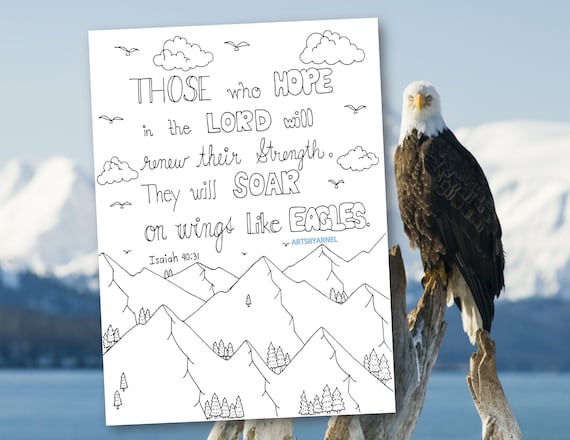 THOSE who HOPE
in the LORD will
renew their Strength.
They will SOAR
on wings Like EAGLES.
ARTSBYARNEL
Isaiah 40:31